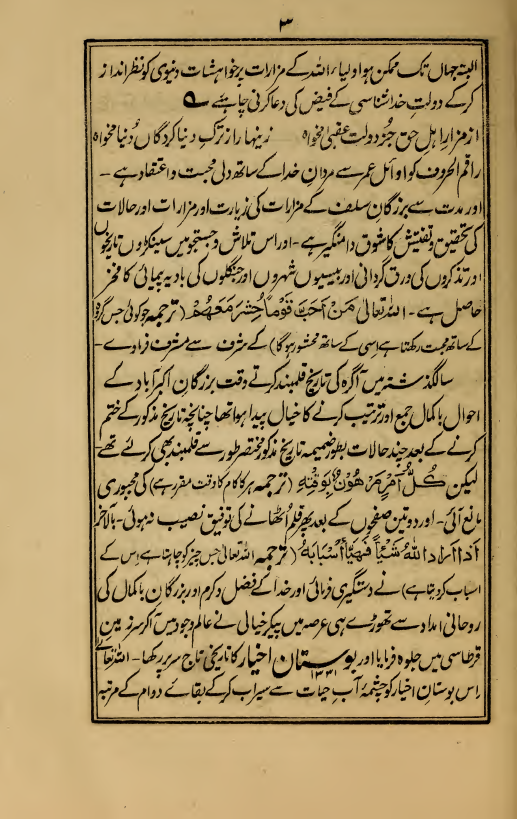 ۳
البتہ جہاں تک ممکن ہو اولیاء اللہ کے مزارات پر خواہشات دنیوی کو نظر انداز
کر کے دولتِ خدا شناسی کے فیض کی دعا کرنی چاہئے ؎
از مزار اہل حق جز دولت عقبیٰ مخواہ زینہار از ترک دنیا کردگاں دُنیا مخواہ
راقم الحروف کو اوائل عمر سے مردانِ خدا کے ساتھ دلی محبت و اعتقاد ہے -
اور مدت سے بزرگانِ سلف کے مزارات کی زیارت اور مزارات اور حالات
کی تحقیق و تفتیش کا شوق دامنگیر ہے - اور اس تلاش و جستجو میں سینکڑوں تاریخوں
اور تذکروں کی ورق گردانی اور بیسیوں شہروں اور جنگلوں کی بادیہ پیمائی کا فخر
حاصل ہے - اللہ تعالیٰ مَنْ اَحَبَّ قَوْماً حُشِرَ مَعَهُمْ (ترجمہ جو کوئی جس گروہ
کے ساتھ محبت رکھتا ہے اسی کے ساتھ محشور ہوگا) کے شرف سے مشرف فرمادے -
سال گذشتہ میں آگرہ کی تاریخ قلمبند کرتے وقت بزرگانِ اکبرآباد کے
احوال باکمال جمع اور ترتیب کرنے کا خیال پیدا ہوا تھا چنانچہ تاریخ مذکور کے ختم
کرنے کے بعد چند حالات بطور ضمیمہ تاریخ مذکور مختصر طور سے قلمبند بھی کر لئے تھے -
لیکن كُلُّ اَمْرٍ مَرْهُوْنٌ بِوَقْتِهٖ (ترجمہ ہر کام کا وقت مقرر ہے) کی مجبوری
مانع آئی - اور دو تین صفحوں کے بعد پھر قلم اُٹھانے کی توفیق نصیب نہ ہوئی - بالآخر
اَذَا اَرَادَ اللهُ شَیْئاً فَهَیَّأَ اَسْبَابَهٗ (ترجمہ اللہ تعالیٰ جس چیز کو چاہتا ہے اس کے
اسباب کر دیتا ہے) نے دستگیری فرمائی اور خدا کے فضل و کرم اور بزرگان باکمال کی
روحانی امداد سے تھوڑے ہی عرصہ میں پیکر خیالی نے عالم وجود میں آکر سرزمین
قرطاسی میں جلوہ فرمایا اور بوستان اخیار کا تاریخی تاج سر پر رکھا - اللہ تعالیٰ
۱۳۳۱
اِس بوستانِ اخیار کو چشمۂ آب حیات سے سیراب کر کے بقائے دوام کے مرتبہ